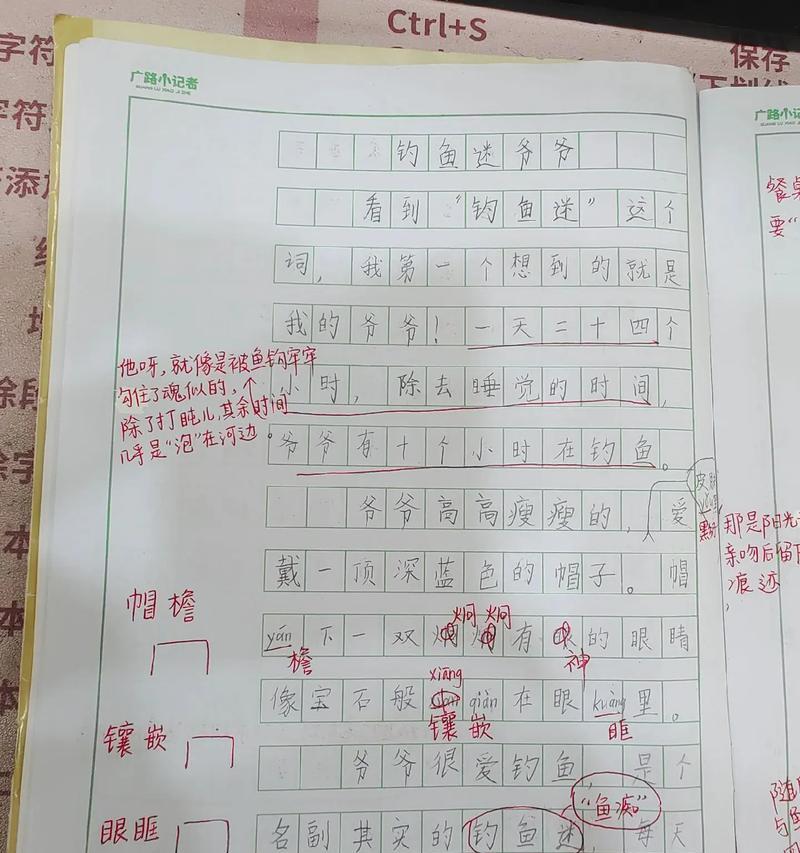 Ctrl+S
保存
字符
字符
添加
除段
除字
本
本
本
广路小记者
GUANG LU XIAO JI ZHE
广路小记
钓鱼迷爷爷
看到“钓鱼迷”这个
词，我第一个想到的就是
我的爷爷！一天二十四个
小时，除去睡觉的时间，
爷爷有十个小时在钓鱼。
他呀，就像是被鱼钩牢牢
勾住了魂似的，
除了打盹儿，其余时间
几乎是“泡”在河边。
爷爷高高瘦瘦的，爱
皮肤
戴一顶深蓝色的帽子。帽
yán下一双 有 的眼睛
炯炯
檐
神
像宝石般 qiàn在眼kuàng里。
xiāng
镶嵌
眶
爷爷很爱钓鱼，是个
“鱼痴”
名副其实的钓鱼迷，每天
帽檐
镶嵌
眼眶
餐桌
要“
那是阳光
亲吻后留下
痕迹
随
与